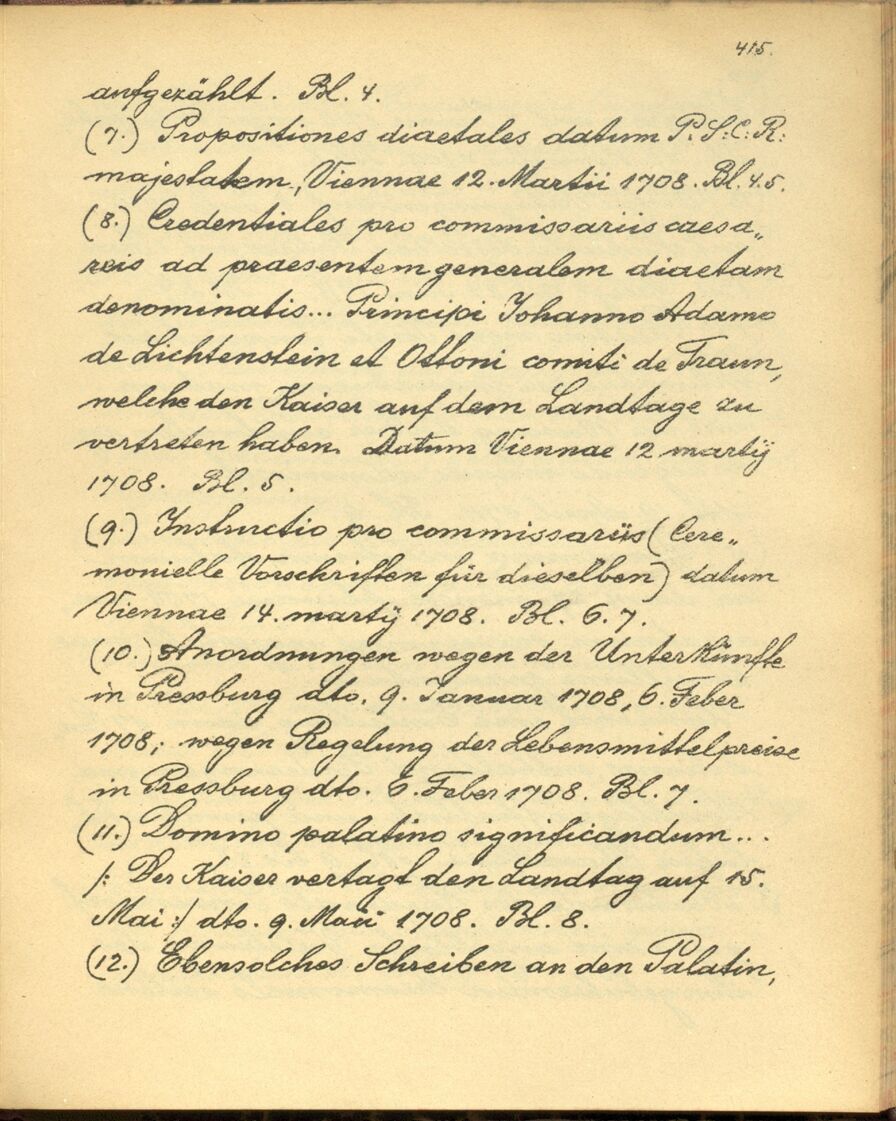 415.
aufgezählt. Bl. 4.
(7.) Propositiones diaetales datum P: S: C: R:
majestatem, Viennae 12. Martii 1708. Bl. 4.5.
(8.) Credentiales pro commissariis caesa„
reis ad praesentem generalem diaetam
denominatis... Principi Johanno Adamo
de Lichtenstein et Ottoni comiti de Traun,
welche den Kaiser auf dem Landtage zu
vertreten haben. Datum Viennae 12 martÿ
1708. Bl. 5.
(9.) Instructio pro commissariis (Cere„
monielle Vorschriften für dieselben) datum
Viennae 14. martÿ 1708. Bl. 6.7.
(10.) Anordnungen wegen der Unterkünfte
in Pressburg dto. 9. Januar 1708, 6. Feber
1708; wegen Regelung der Lebensmittelpreise
in Pressburg dto. 6. Feber 1708. Bl. 7.
(11.) Domino palatino significandum...
/: Der Kaiser vertagt den Landtag auf 15.
Mai :/ dto. 9. Maii 1708. Bl. 8.
(12.) Ebensolches Schreiben an den Palatin,